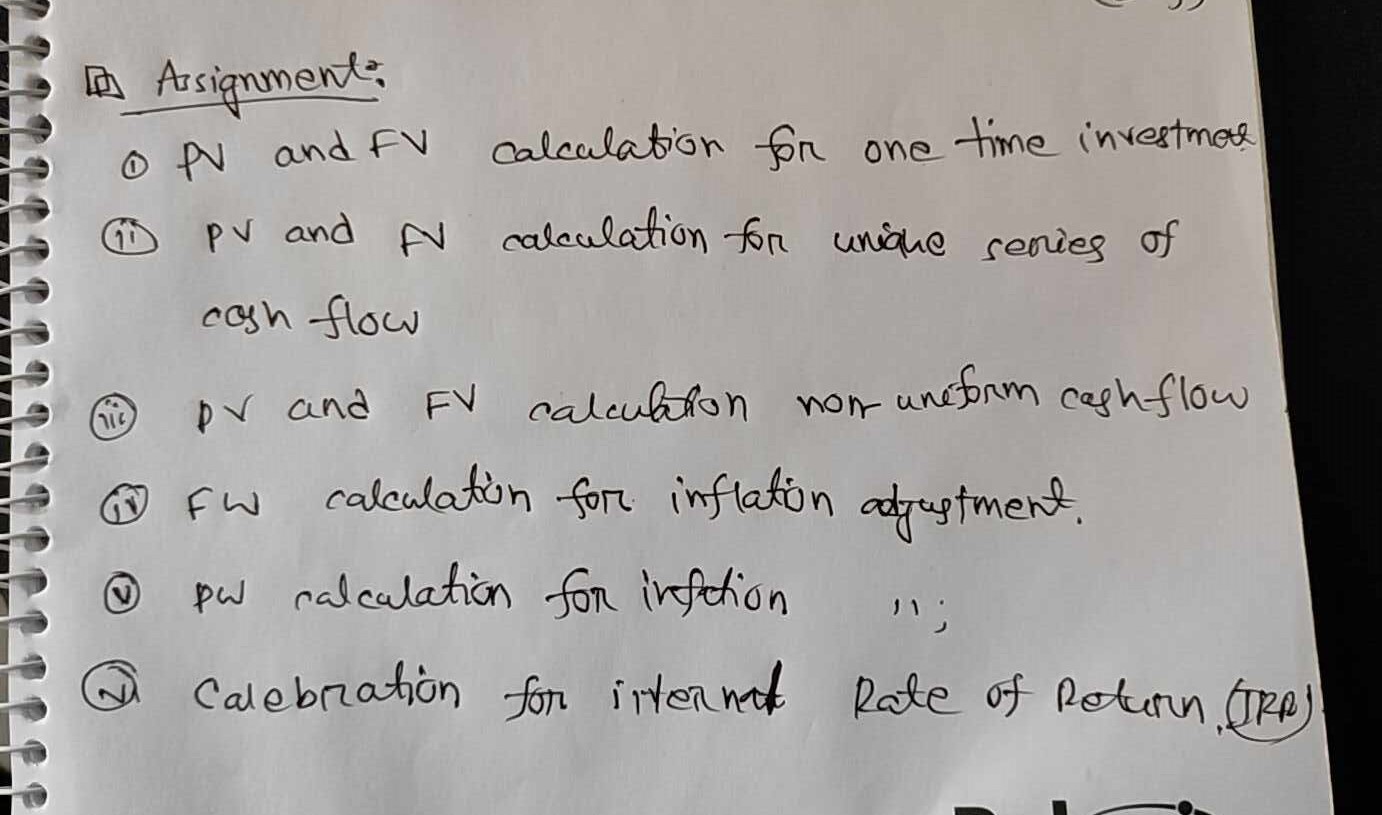 Assignment:
① PV and FV calculation for one time investment
ⅱ PV and FV calculation for unique series of
cash flow
ⅲ PV and FV calculation non-uniform cashflow
ⅳ FW calculation for inflation adjustment.
ⅴ PW calculation for infction ";
ⅵ Calebration for internal Rate of Return. (IRR)